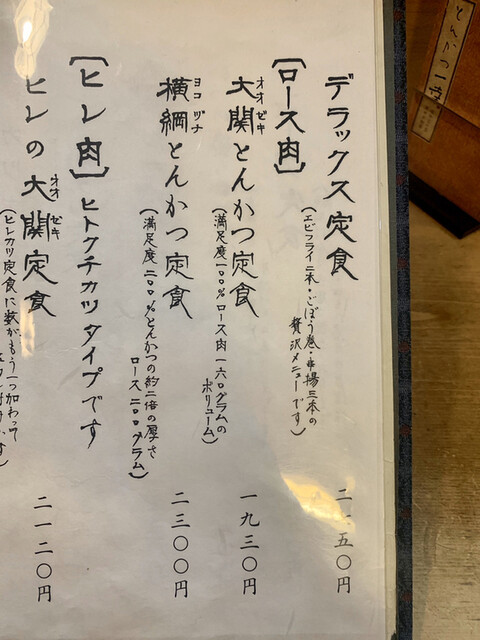 デラックス定食
(エビフライ二本・ごぼう巻・串揚三本の
贅沢メニューです)
二一五〇円
[ロース肉]
オオ ゼキ
大関とんかつ定食
(満足度一〇〇%ロース肉一六〇グラムの
ボリューム)
一九三〇円
ヨコ ヅナ
横綱とんかつ定食
(満足度二〇〇%とんかつの約二倍の厚さ
ロース二〇〇グラム)
二三〇〇円
[ヒレ肉]ヒトクチカツタイプです
オオ ゼキ
ヒレの大関定食
(ヒレカツ定食に数がもう一つ加わって
二一二〇円
とんかつ一